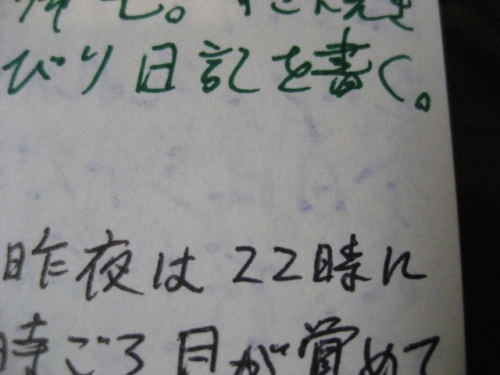 びり日記を書く。
昨夜は22時に
時ごろ目が覚めて